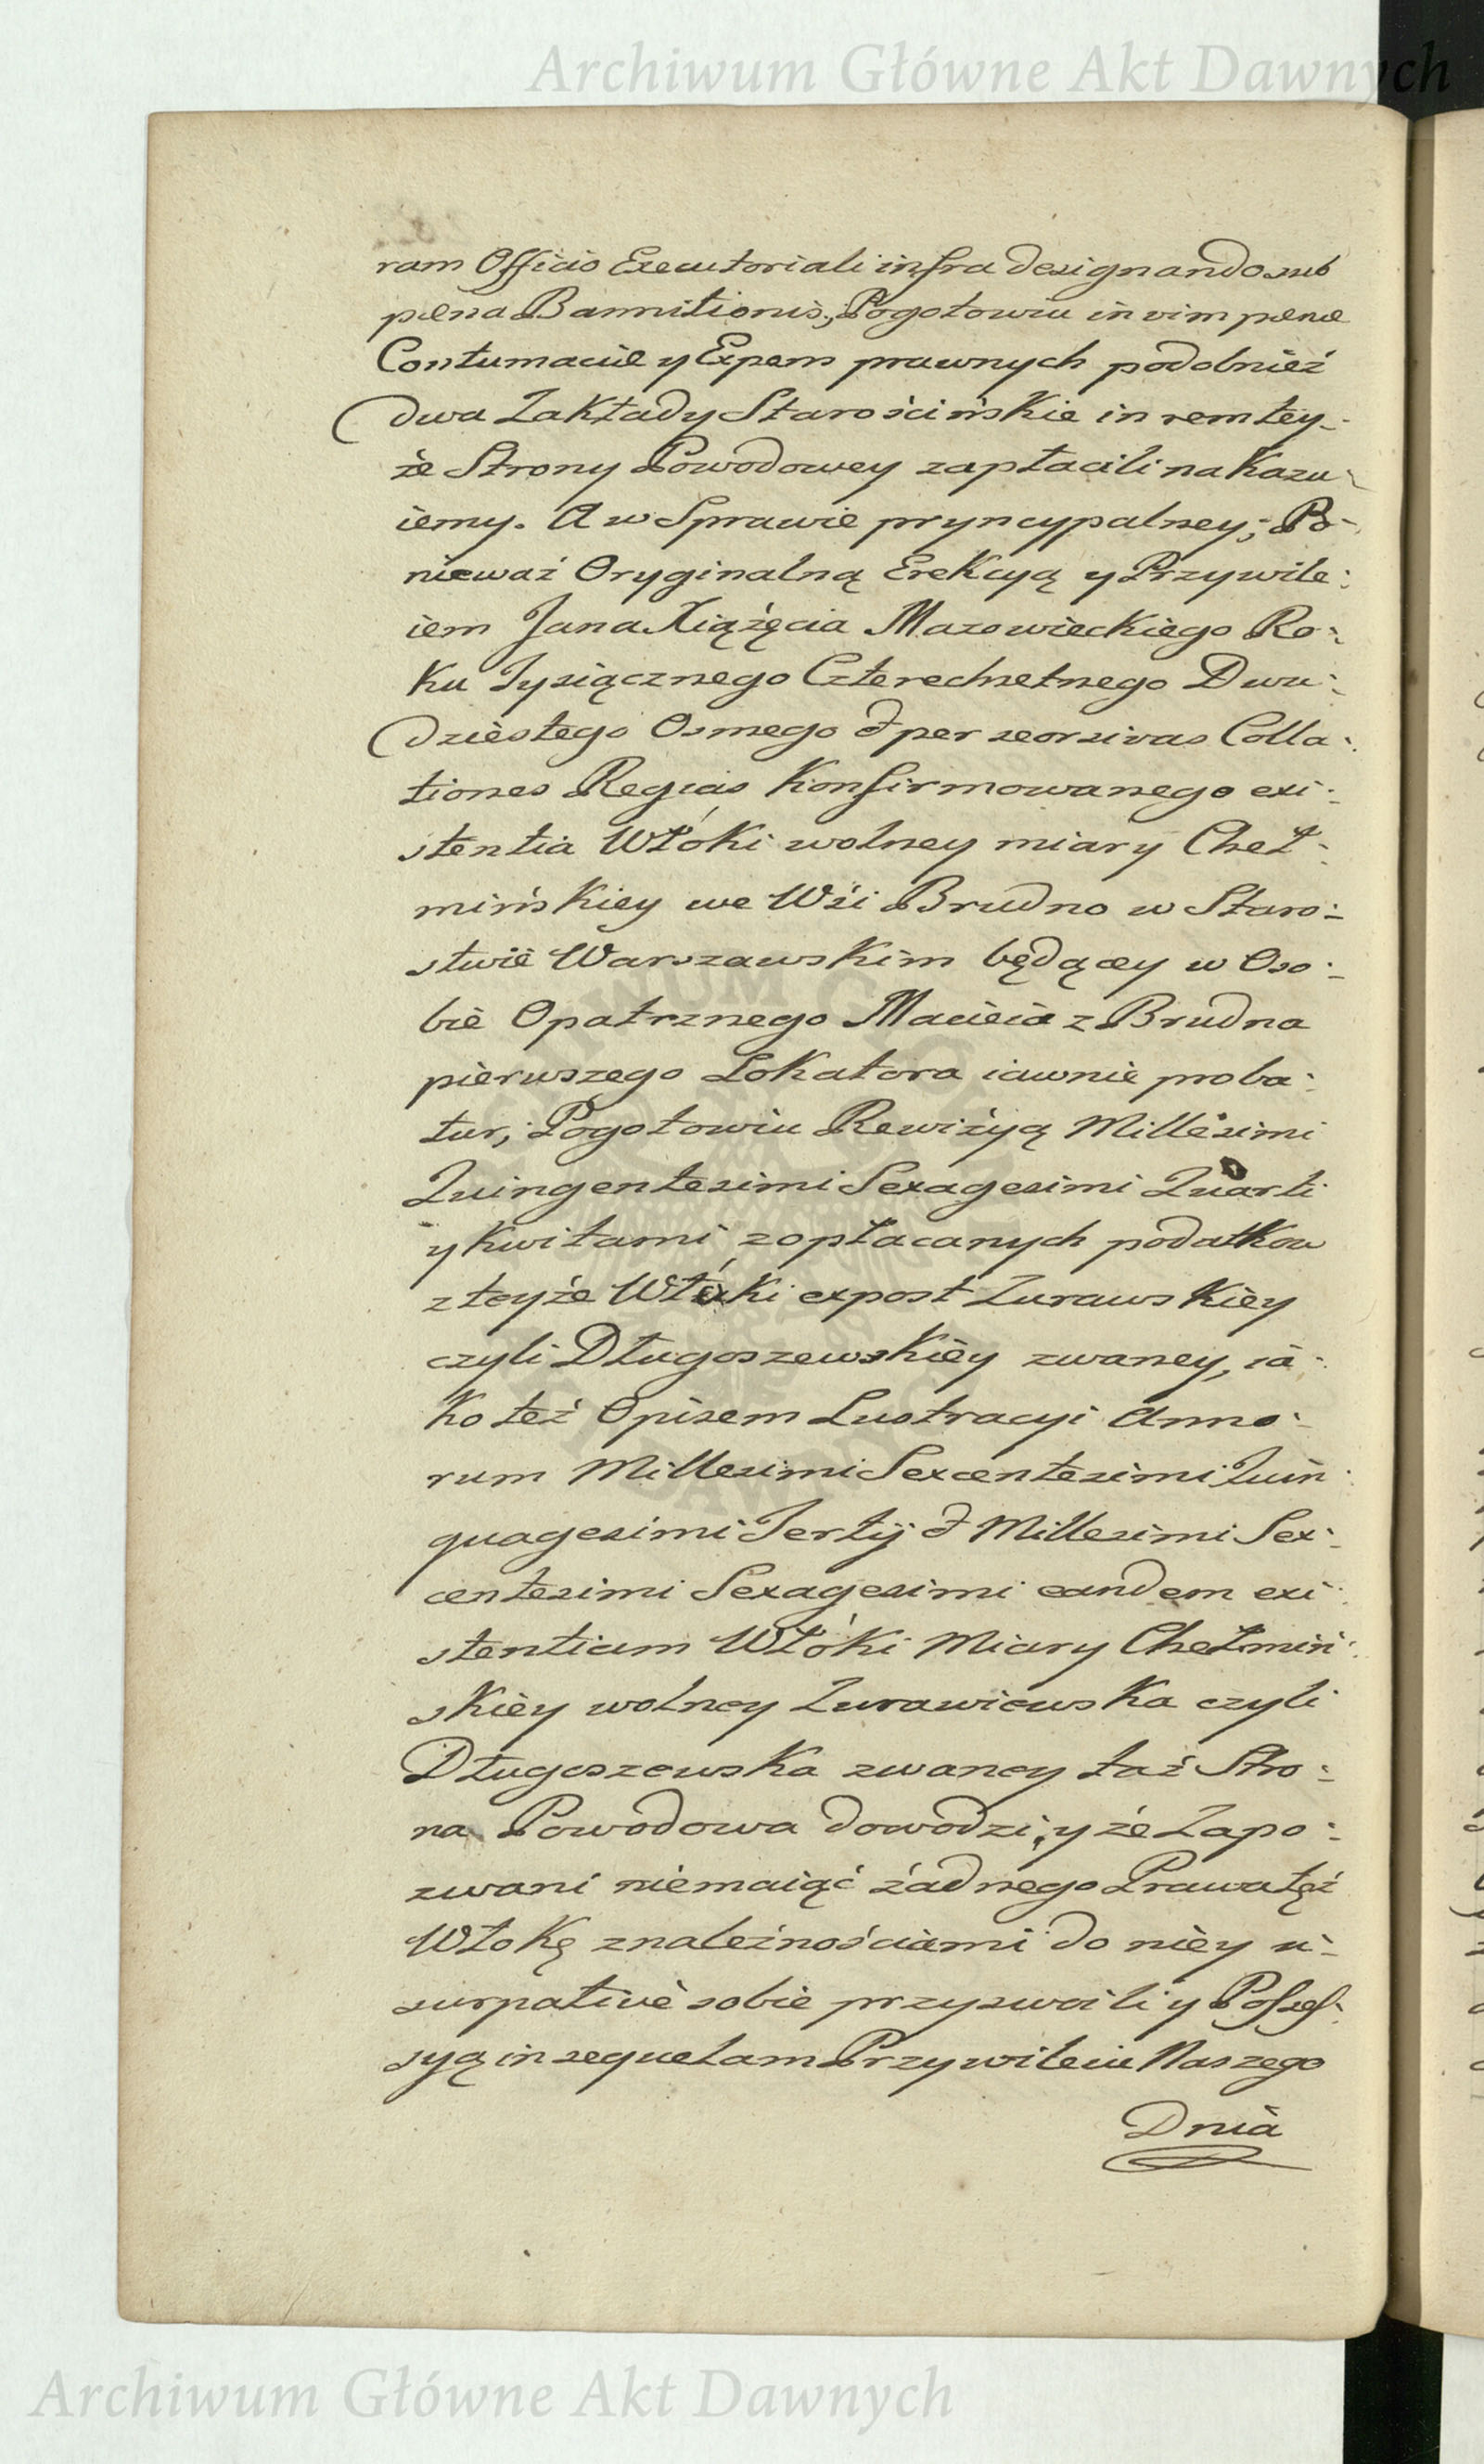 Archiwum Główne Akt Dawnych
ram Officio Executoriali infra designando sub
pœna Bannitionis, Pogotowiu in vim pœnæ
Contumaciæ y Expens prawnych podobnież
dwa Zakłady Starościńskie in rem tey-
że Strony Powodowey zapłacili nakazu-
iemy. A w Sprawie pryncypalney; Po-
nieważ Oryginalną Erekcyą y Przywile-
iem Jana Xiążęcia Mazowieckiego Ro-
ku Tysiącznego Czterechsetnego Dwu-
dziestego Osmego & per seorsivas Colla-
tiones Regias konfirmowanego exi-
stentia Włóki wolney miary Cheł-
mińskiey we Wśi Brudno w Staro-
stwie Warszawskim będącey w Oso-
bie Opatrznego Macieia z Brudna
pierwszego Lokatora iawnie proba-
tur, Pogotowiu Rewizyą Millesimi
Quingentesimi Sexagesimi Quarti
y kwitami z opłacanych podatkow
z teyże Włóki ex post Zurawskiey
czyli Długoszewskiey zwaney, ia-
ko też Opisem Lustracyi Anno-
rum Millesimi Sexcentesimi Quin-
quagesimi Tertij & Millesimi Sex-
centesimi Sexagesimi eandem exi-
stentiam Włóki Miary Chełmiń-
skiey wolney Zurawiewska czyli
Długoszewska zwaney taż Stro-
na Powodowa dowodzi, y że Zapo-
zwani niemaiąć żadnego Prawa tęż
Włokę z należnościami do niey u-
surpative sobie przyswoili y Possess-
syą in sequelam Przywileiu Naszego
Dnia
Archiwum Główne Akt Dawnych